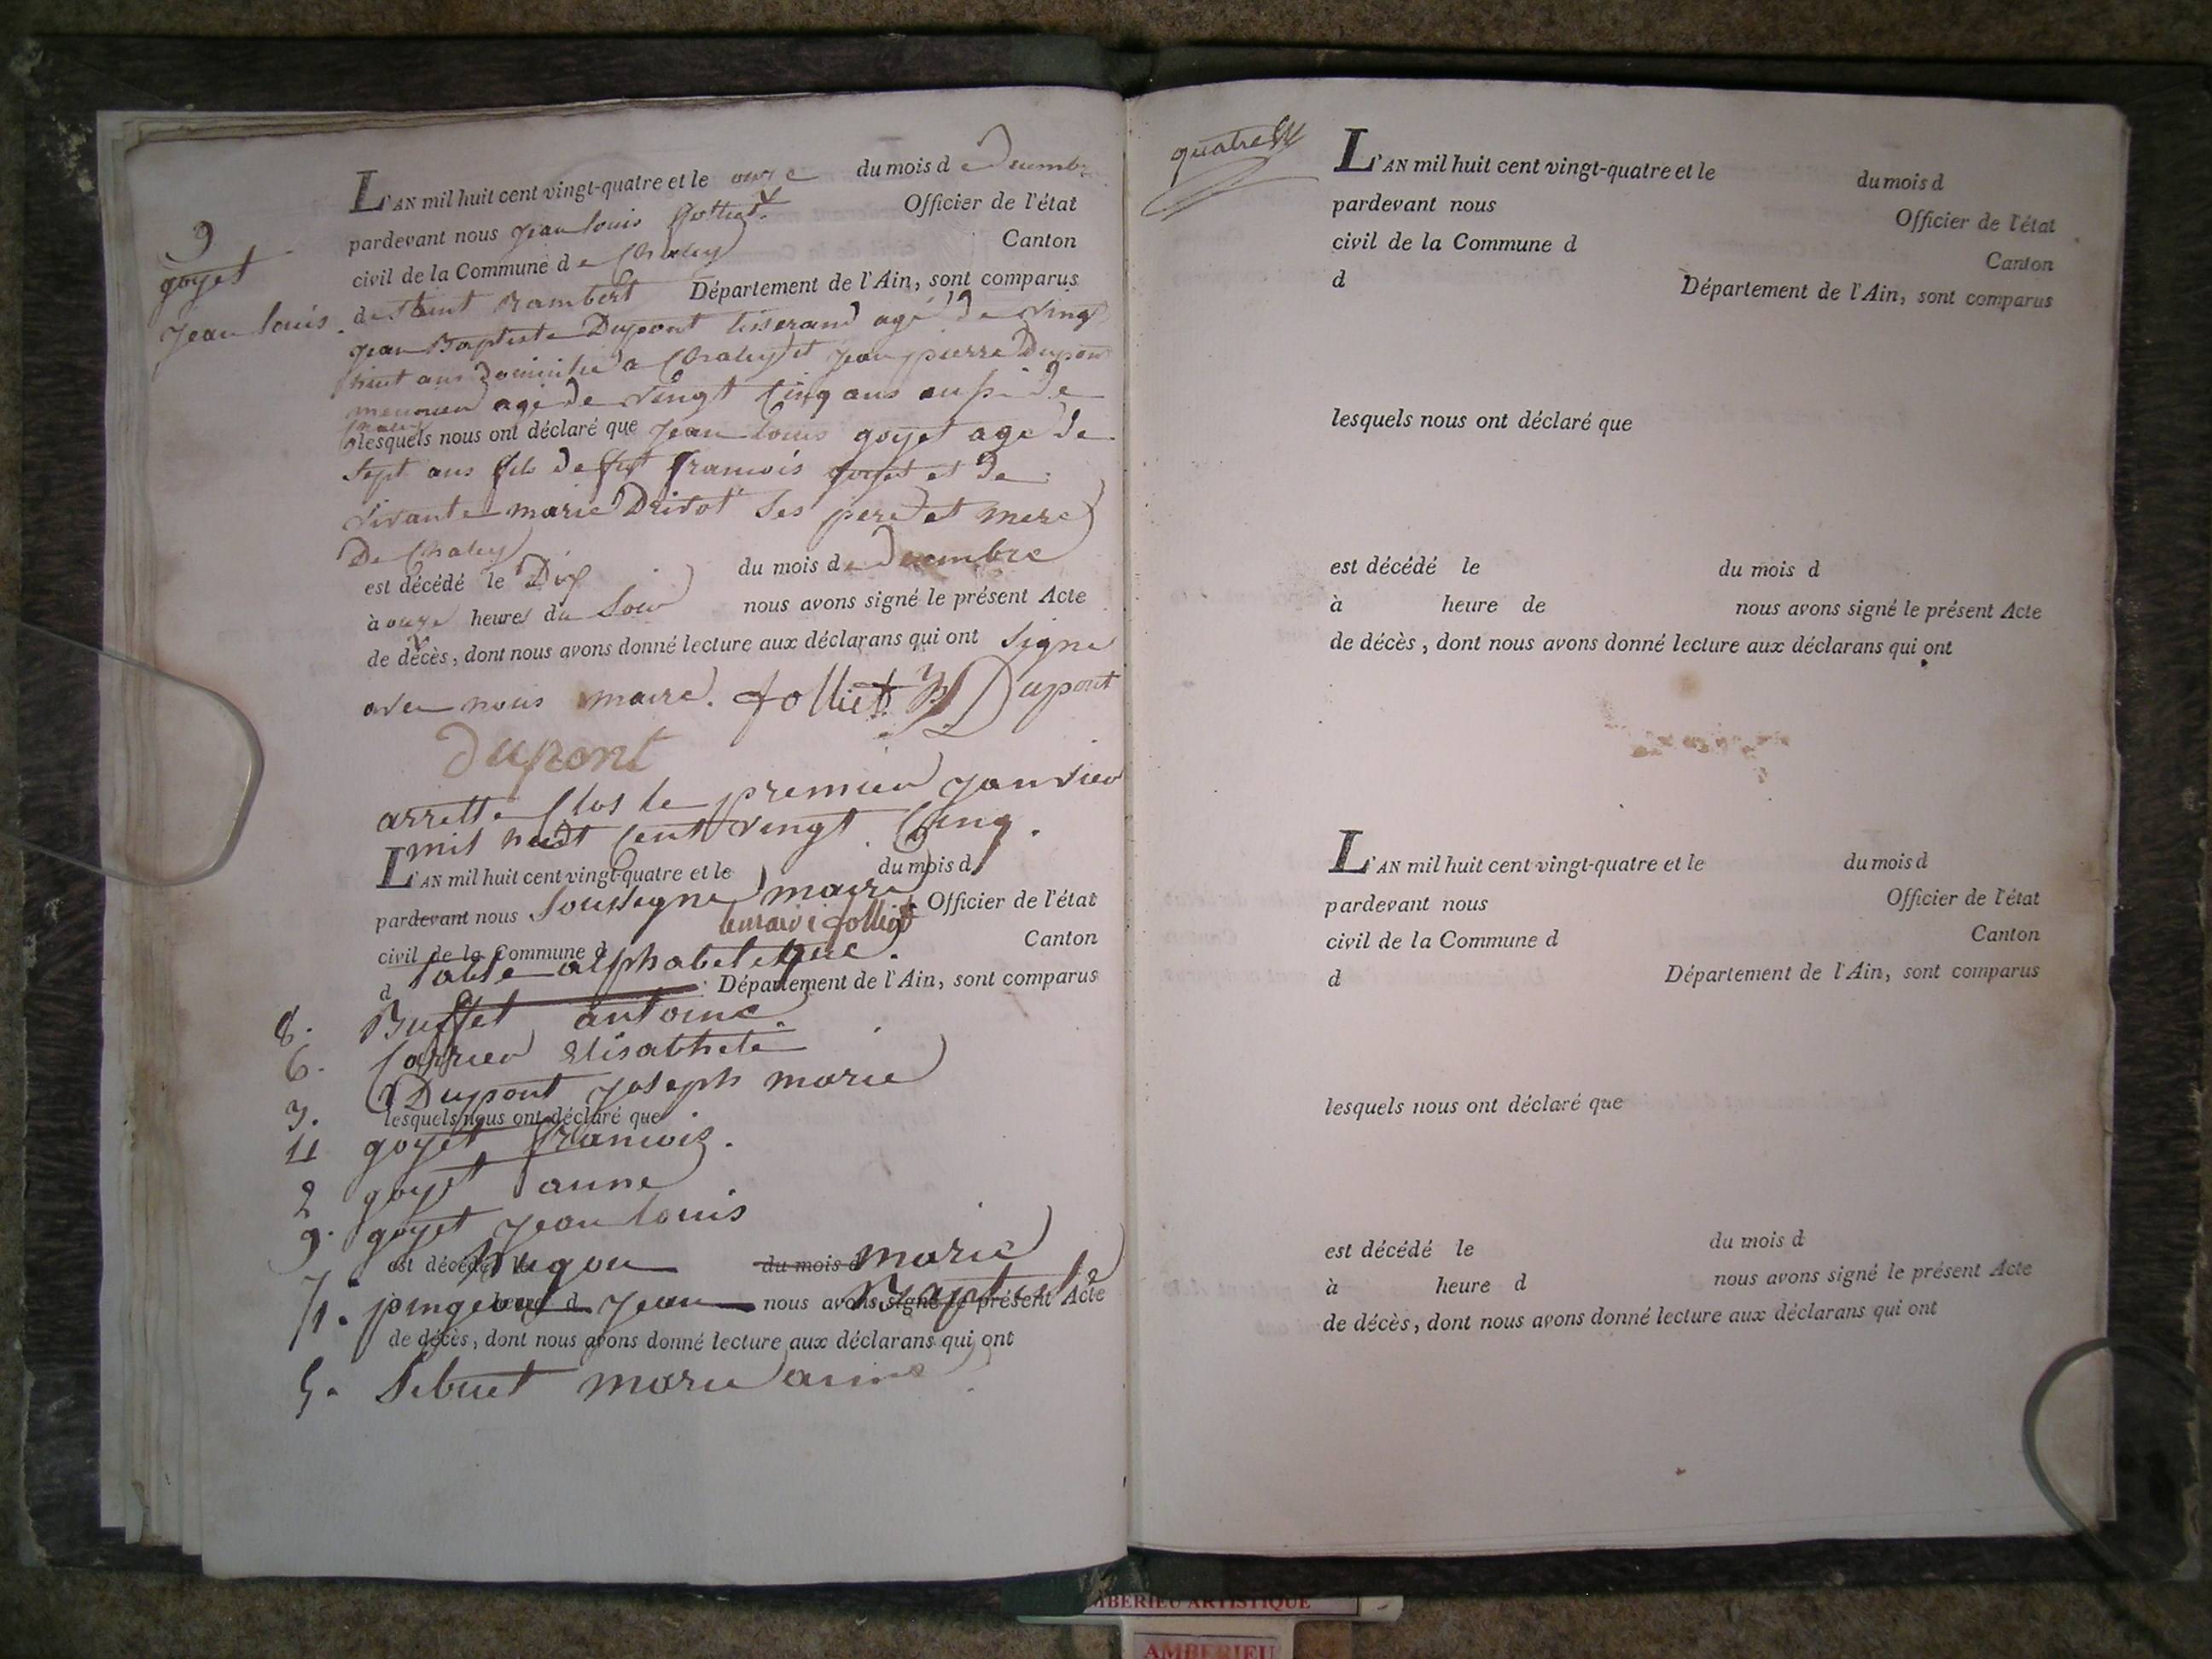 9
goyet
Jean louis
L'AN mil huit cent vingt-quatre et le onze du mois de Decembre
pardevant nous Jean louis Golliet Officier de l'état
civil de la Commune de Chaley Canton
de Saint Rambert Département de l'Ain, sont comparus
Jean Baptiste Dupont tisserand agé de vingt
huit ans domicilié a Chaley et Jean pierre Dupont
meunier agé de vingt Cinq ans aussi de
Chaley lesquels nous ont déclaré que Jean louis goyet age de
sept ans fils de francois goyet et de
vivante marie Drivot ses pere et mere
De Chaley
est décédé le Dix du mois de Decembre
à onze heures du Soir nous avons signé le présent Acte
de décès, dont nous avons donné lecture aux déclarans qui ont signe
avec nous maire. golliet Dupont
dupont
arrette Clos le premier Janvier
mil huit Cent vingt Cinq.
L'AN mil huit cent vingt-quatre et le du mois d
pardevant nous Soussigne maire Officier de l'état
le maire golliet
civil de la Commune d Canton
table alphabetique.
d Département de l'Ain, sont comparus
8. Buffet antoine
6. Carrier Elisabhete
3. Dupont Joseph marie
lesquels nous ont déclaré que
4 goyet francois.
2 goyet anne
9. goyet Jean louis
est décédé le du mois d
7. hugon marie
1. pingeon Jean Baptiste
heure d nous avons signé le présent Acte
de décès, dont nous avons donné lecture aux déclarans qui ont
5. Sibuet marie anne
quatre
L'AN mil huit cent vingt-quatre et le du mois d
pardevant nous Officier de l'état
civil de la Commune d Canton
d Département de l'Ain, sont comparus
lesquels nous ont déclaré que
est décédé le du mois d
à heure de nous avons signé le présent Acte
de décès, dont nous avons donné lecture aux déclarans qui ont
L'AN mil huit cent vingt-quatre et le du mois d
pardevant nous Officier de l'état
civil de la Commune d Canton
d Département de l'Ain, sont comparus
lesquels nous ont déclaré que
est décédé le du mois d
à heure d nous avons signé le présent Acte
de décès, dont nous avons donné lecture aux déclarans qui ont
AMBERIEU ARTISTIQUE
AMBERIEU